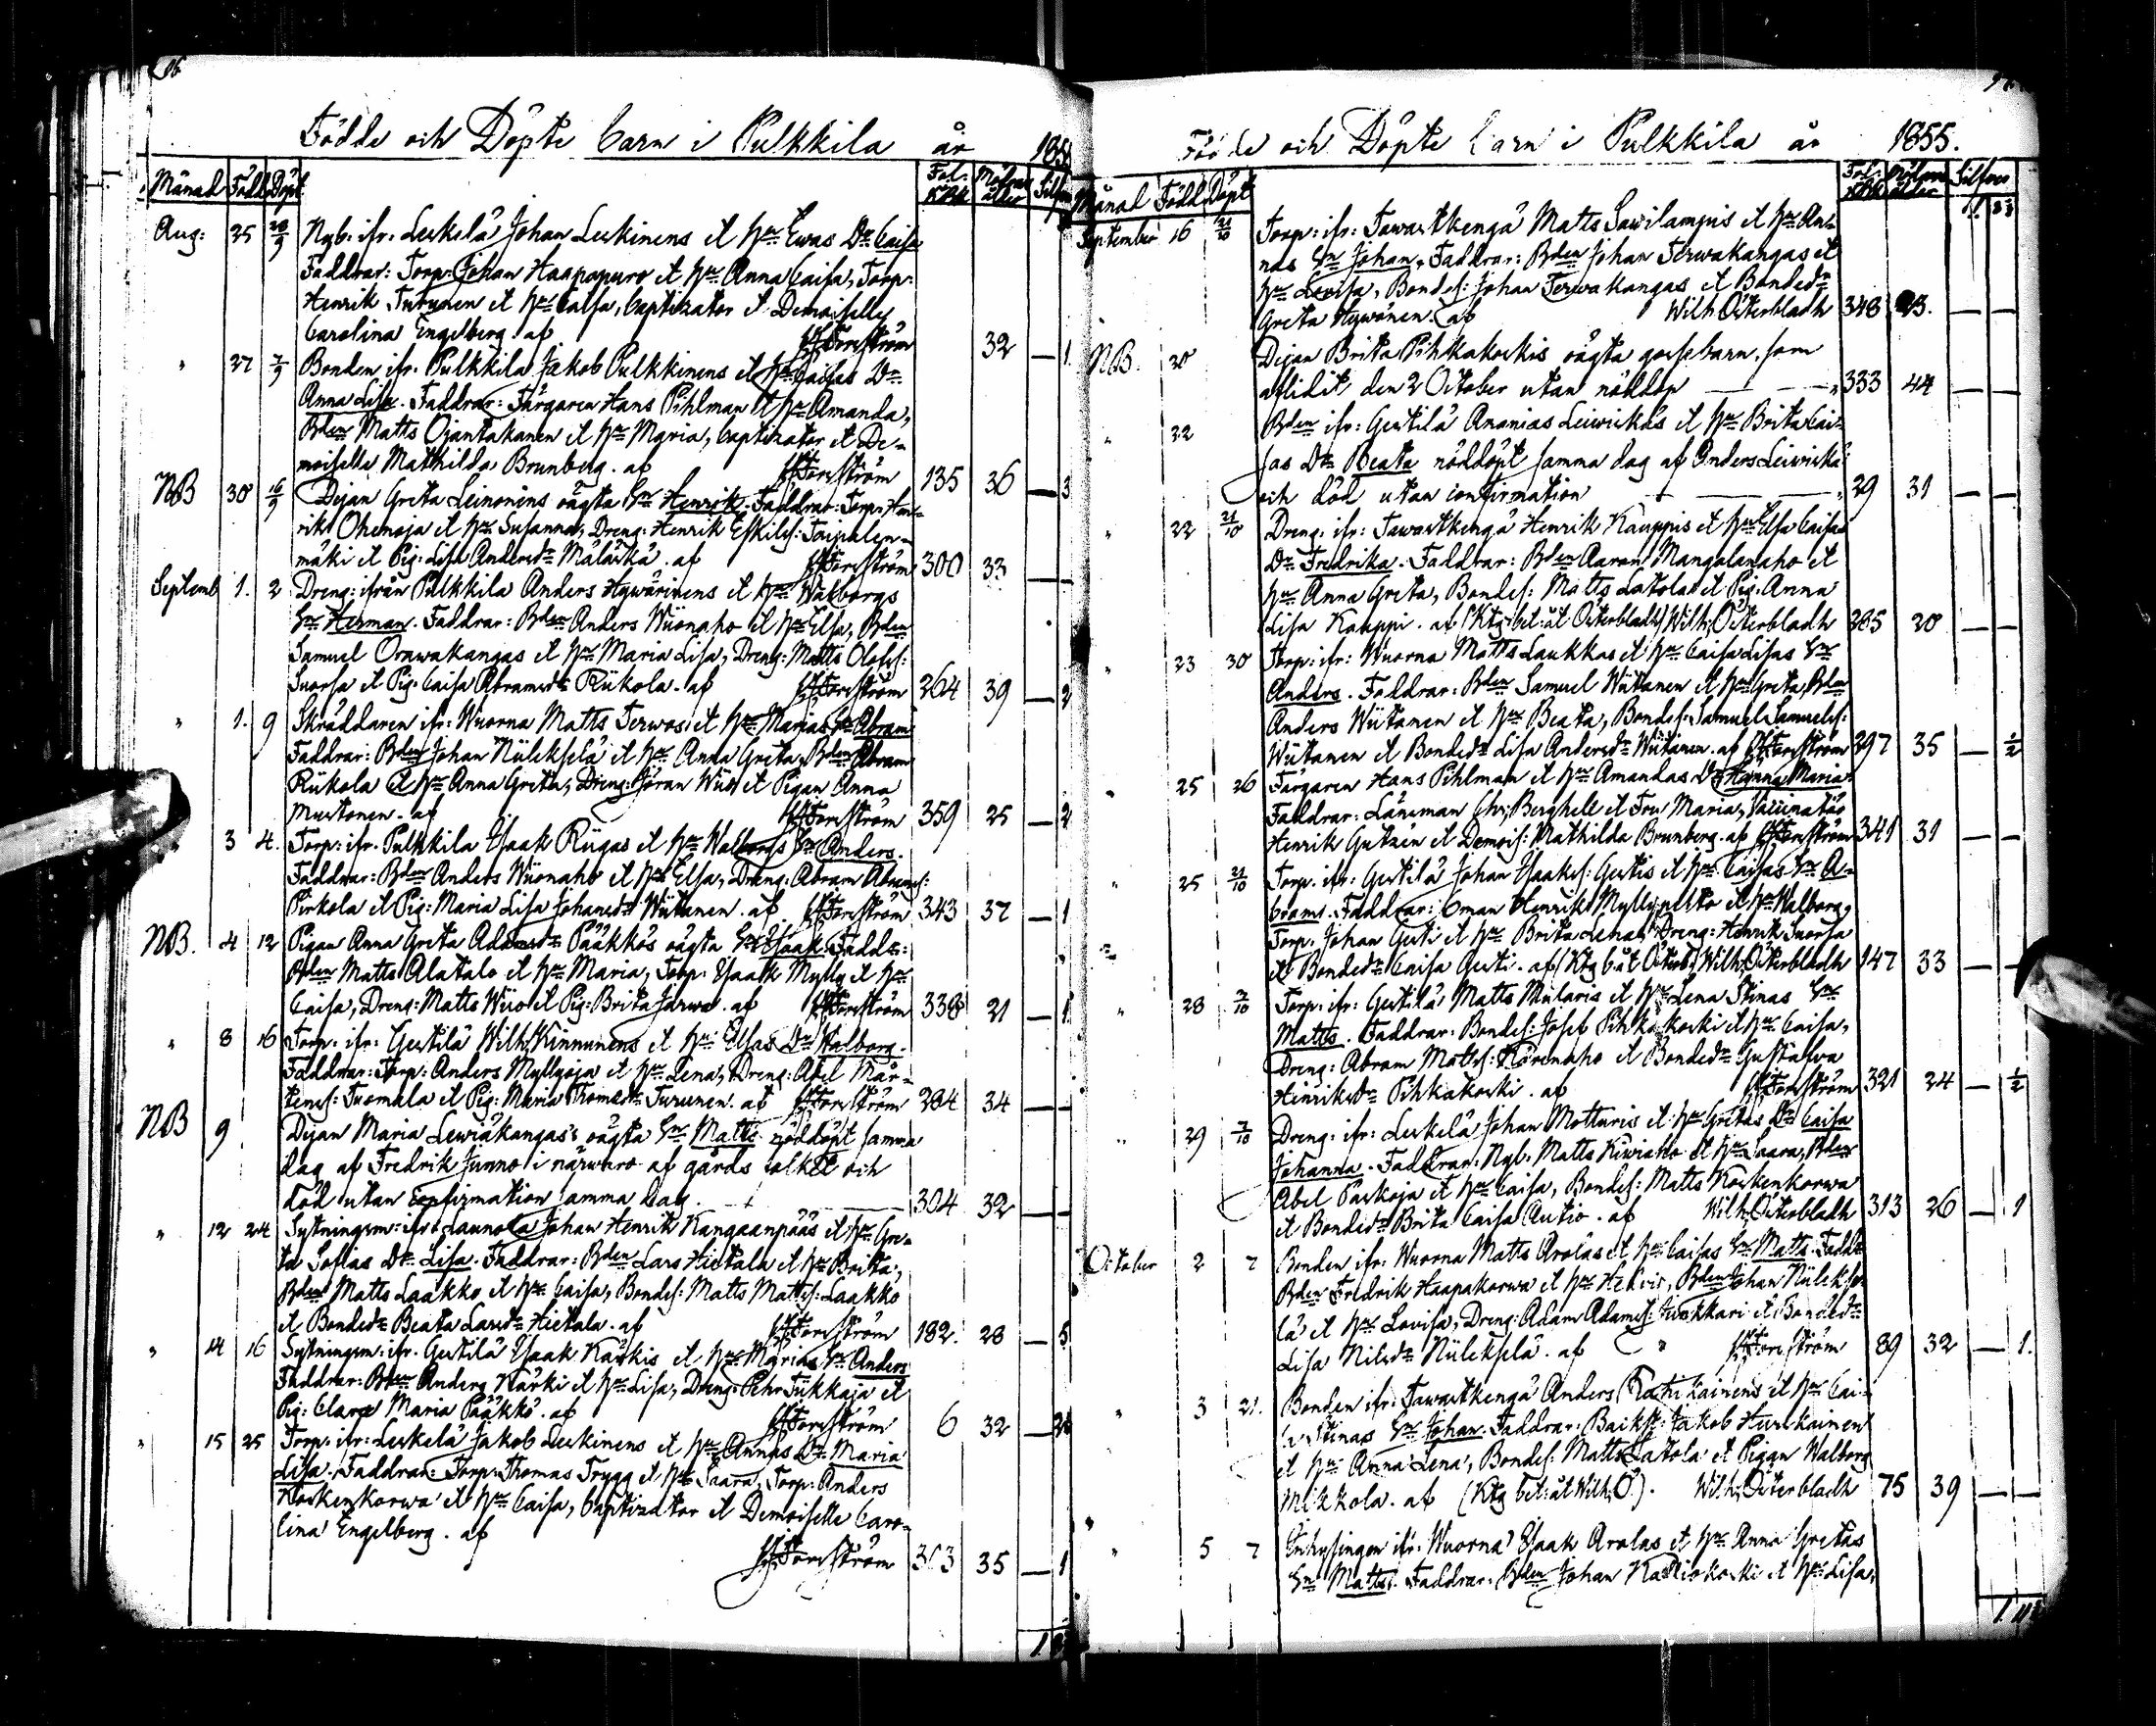 Födde och Döpte barn i Pulkkila år
Månad Född Döpt Fol. Mödrar ålder
Aug: 25 Nyb: ifr: Leskelä Johan Leskinens et Hru Ewas Dr Caisa
Faddrar: Torp: Johan Haapapuro et Hru Anna Caisa, Torp:
Henrik Turunen et Hru Caisa, baptizator et Demoiselle
Carolina Engelberg. af Forsström 32 — 1
" 27 7/9 Bonden ifr. Pulkkila Jakob Pulkkinens et Hru Caisas Dr
Anna Lisa. Faddrar: Färgaren Hans Pihlman et Hru Amanda,
Bden Matts Ojantakanen et Hru Maria, baptizator et De-
moiselle Mathilda Brunberg. af Forsström 135 36 — 3
NB 30 16/9 Pigan Greta Leinonens oägta Sn Henrik. Faddrar: Torp: Hen-
rik Ohemaja et Hru Susanna, Dreng: Henrik Eskils: Taipalen-
mäki et Pig: Lisa Andersdr Mäläskä. af Forsström 300 33 —
Septemb 1. 2 Dreng: ifrån Pulkkila Anders Hywärinens et Hru Walborgs
Sn Herman. Faddrar: Bden Anders Wüonaho et Hru Elsa, Bden
Samuel Orawakangas et Hru Maria Lisa, Dreng: Matts Olofs:
Suorsa et Pig: Caisa Abramsdr Rükola. af Forsström 264 39 — 2
" 1. 9 Skräddaren ifr: Wuorna Matts Terwos et Hru Marias Sn Abram
Faddrar: Bden Johan Nülekselä et Hru Anna Greta, Bden Abram
Rükola et Hru Anna Greta, Dreng: Jöran Wüo et Pigan Anna
Mustonen. af Forsström 359 25 — 2
3 4. Torp: ifr. Pulkkila Isaak Rügas et Hru Walborgs Sn Anders.
Faddrar: Bden Anders Wüonaho et Hru Elsa, Dreng: Abram Abrams:
Pirkola et Pig: Maria Lisa Johansdr Wütanen. af Forsström 343 37 — 1
NB. 4 12 Pigan Anna Greta Adamsdr Pääkkös oägta Sn Isaak. Faddr:
Bden Matts Alatalo et Hru Maria, Torp: Isaak Mylly et Hru
Caisa, Dreng: Matts Wüo et Pig: Brita Jarwa. af Forsström 338 21 — 1
" 8 16 Torp: ifr: Gertilä Wilh: Kinnunens et Hru Elsas Dr Walborg.
Faddrar: Torp: Anders Myllyoja et Hru Lena, Dreng: Abel Mår-
tens: Tuomala et Pig: Maria Thomasdr Turunen. af Forsström 284 34 —
NB 9 Pigan Maria Lewiäkangas's oägta Sn Matts nöddöpt samma
dag af Fredrik Junno i närwaro af gårds folket och
död utan confirmation samma dag 304 32 —
" 12 24 Sytningsm: ifr: Launola Johan Henrik Kangaanpääs et Hru Gre-
ta Sofias Dr Lisa. Faddrar: Bden Lars Hietala et Hru Brita,
Bden Matts Laakko et Hru Caisa, Bondes: Matts Matts: Laakko
et Bondedr Beata Larsdr Hietala. af Forsström 182. 28 — 5
" 14 16 Sytningsm: ifr. Gertilä Isaak Kärkis et Hru Marias Sn Anders
Faddrar: Bden Anders Kärki et Hru Lisa, Dreng: Pehr Tükkaja et
Pig: Clara Maria Pääkkö. af Forsström 6 32 —
" 15 25 Torp: ifr: Leskelä Jakob Leskinens et Hru Annas Dr Maria
Lisa. Faddrar: Torp: Thomas Trygg et Hru Saara, Torp: Anders
Koskenkorwa et Hru Caisa, baptizator et Demoiselle Caro-
lina Engelberg. af
Forsström 35 — 1
Födde och Döpte barn i Pulkkila år 1855.
Månad Född Döpt Fol. Mödrar ålder Silfver
September 16 21/10 Torp: ifr: Tawastkengä Matts Sawilampis et Hru An-
nas Sn Johan. Faddrar: Bden Johan Terwakangas et
Hru Lovisa, Bondes: Johan Terwakangas et Bondedr
Greta Hywönen. af Wilh. Österbladh 348 23. — —
NB. 20 Pigan Brita Pihkakoskis oägta gossebarn, som
aflidit den 2 October utan nöddop — " 333 44 — —
" 22 Bden ifr: Gertilä Ananias Leiwiskäs et Hru Brita Cai-
sas Dr Beata nöddöpt samma dag af Anders Leiwiskä
och död utan confirmation — " 29 31 — —
" 22 21/10 Dreng: ifr: Tawastkengä Henrik Kauppis et Hru Elsa Caisas
Dr Fredrika. Faddrar: Bden Aaron Mangalanaho et
Hru Anna Greta, Bondes: Matts Latola et Pig: Anna
Lisa Kauppi. af (Ktg: bet: åt Österbladh) Wilh. Österbladh 285 20 — —
" 23 30 Torp: ifr: Wuorna Matts Laukkas et Hru Caisa Lisas Sn
Anders. Faddrar: Bden Samuel Wütanen et Hru Greta, Bden
Anders Wütanen et Hru Beata, Bondes: Samuel Samuels:
Wütanen et Bondedr Lisa Andersdr Wütanen. af Forsström 297 35 — 1/2
" 25 26 Färgaren Hans Pihlman et Hru Amandas Dr Hanna Maria.
Faddrar: Länsman Chr: Berghell et Fru Maria, Vaccinatör
Henrik Gutzén et Demois: Mathilda Brunberg. af Forsström 341 31 — —
" 25 21/10 Torp: ifr: Gertilä Johan Isaaks: Gertis et Hru Caisas Sn A-
brams. Faddrar: Bman Henrik Myllypelto et Hru Walborg,
Torp: Johan Gerti et Hru Brita Lena, Dreng: Henrik Suorsa
et Bondedr Caisa Gerti. af (Ktg b. åt Österb:) Wilh. Österbladh 147 33 — —
" 28 2/10 Torp: ifr: Gertilä Matts Mularis et Hru Lena Stinas Sn
Matts. Faddrar: Bondes: Josef Pihkakoski et Hru Caisa,
Dreng: Abram Matts: Härönaho et Bondedr Gustafva
Henriksdr Pihkakoski. af Forsström 321 24 — 1/2
" 29 7/10 Dreng: ifr: Leskelä Johan Mottaris et Hru Gretas Dr Caisa
Johanna. Faddrar: Nyb. Matts Kiwiaho et Hru Saara, Bden
Abel Paskoja et Hru Caisa, Bondes: Matts Koskenkorwa
et Bondedr Brita Caisa Autio. af Wilh. Österbladh 313 26 — 1
October 2 7 Bonden ifr: Wuorna Matts Arolas et Hru Caisas Sn Matts. Faddr:
Bden Fredrik Haapakorwa et Hru Helvis, Bden Johan Nülekse-
lä et Hru Lovisa, Dreng: Adam Adams: Junkkari et Bondedr
Lisa Nilsdr Nülekselä. af " Forsström 89 32 — 1.
" 3 21. Bonden ifr: Tawastkengä Anders Raatikainens et Hru Cai-
sa Stinas Sn Johan. Faddrar: Backst: Jakob Hurskainen
et Hru Anna Lena, Bondes: Matts Latola et Pigan Walborg
Mikkola. af (Ktg bet: åt Wilh: Ö.). Wilh. Österbladh 75 39 — —
" 5 7 Inhysingen ifr: Wuorna Isaak Arolas et Hru Anna Gretas
Sn Matts. Faddrar: Bden Johan Kalliokoski et Hru Lisa,